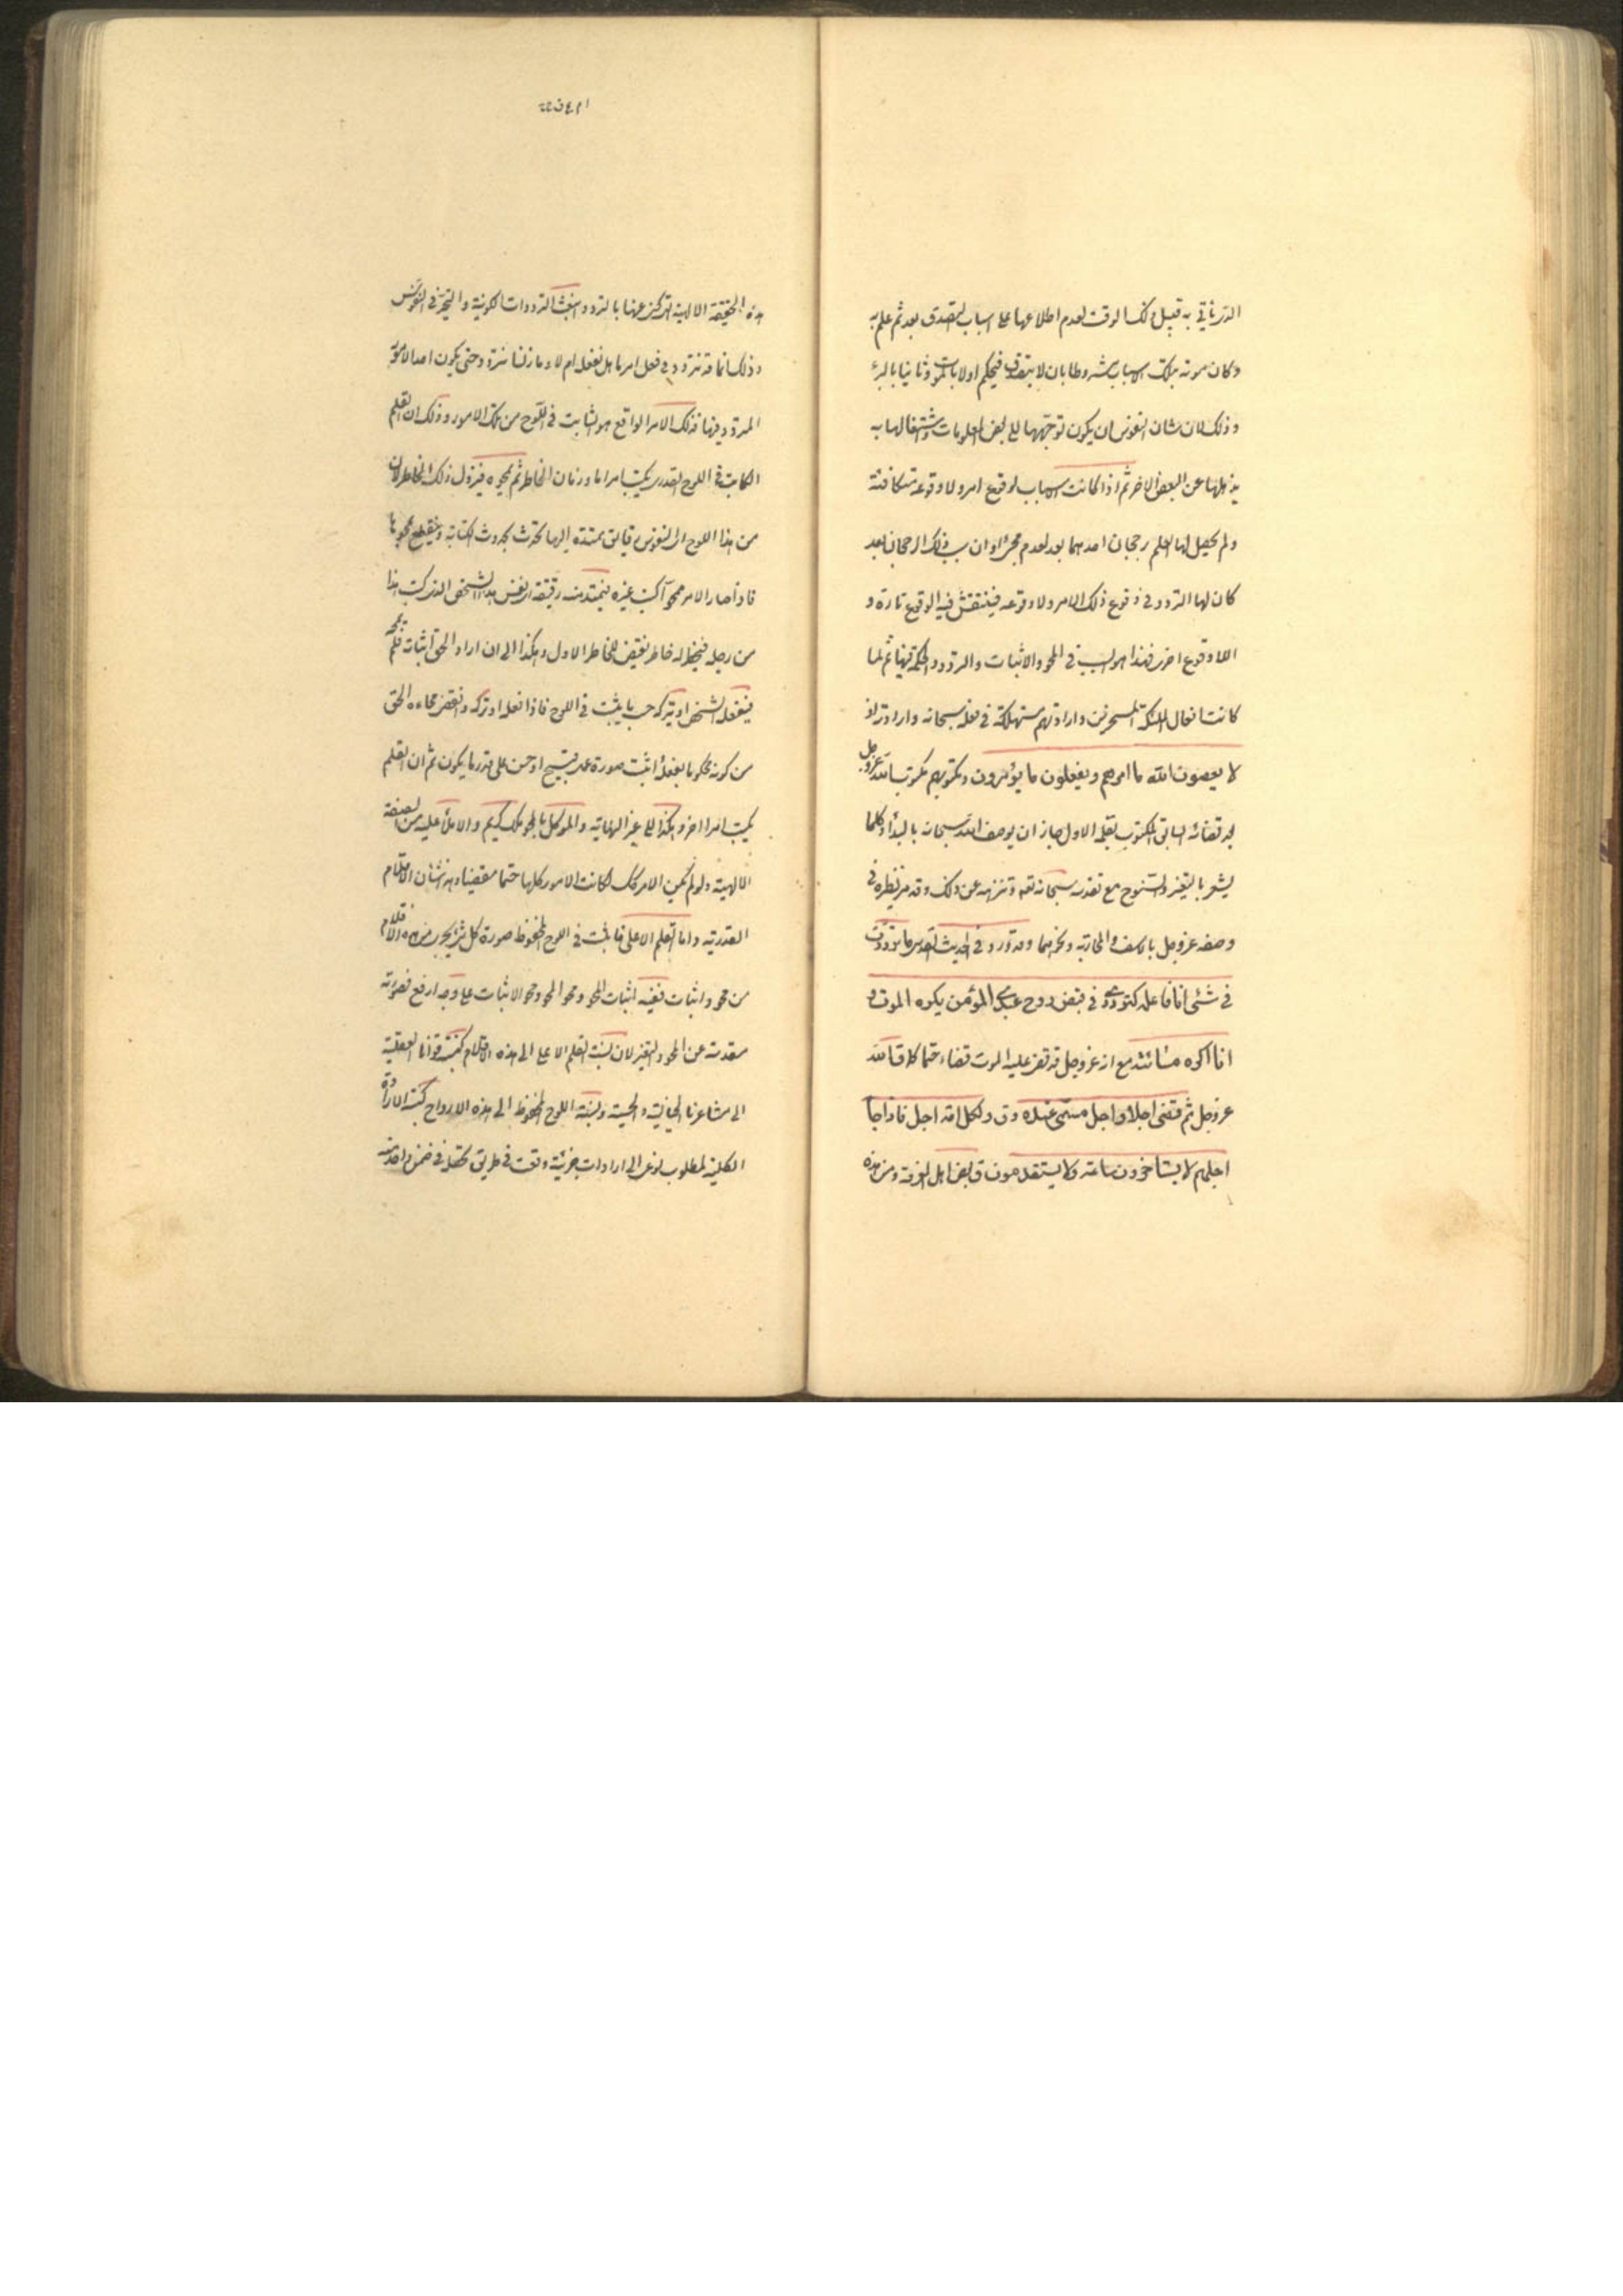 الذي ياتي به قبيل ذلك الوقت لعدم اطلاعها على اسباب التصدق بعد ثم علم به
وكان موته بتلك الاسباب مشروطا بان لا يتصدق فيحكم اولا بالموت وثانيا بالبرء
وذلك لان شان النفوس ان يكون توجهها الى بعض المعلومات واشتغالها به
يذهلها عن البعض الاخر ثم اذا كانت الاسباب لوقوع امر ولا وقوعه متكافئة
ولم يحصل لها العلم برجحان احدهما بعد لعدم مجئ اوان سبب ذلك الرجحان بعد
كان لها التردد في وقوع ذلك الامر ولا وقوعه فينتقش فيه الوقوع تارة و
اللاوقوع اخرى فهذا هو السبب في المحو والاثبات والتردد والحكمة فيها ثم لما
كانت افعال الملئكة المسخرين وارادتهم مستهلكة في فعله سبحانه وارادته اذ
لا يعصون الله ما امرهم ويفعلون ما يؤمرون ومكتوبهم مكتوب الله عز وجل
بعد قضائه السابق المكتوب بقلمه الاول جاز ان يوصف الله سبحانه بالبداء وكلما
يشعر بالتغير والسنوح مع تقدسه سبحانه تعه وتنزهه عن ذلك وقد مر نظيره في
وصفه عز وجل بالاسف والمحاربة ونحوهما وقد ورد في الحديث القدسي ما ترددت
في شئ انا فاعله كترددي في قبض روح عبدي المؤمن يكره الموت و
انا اكره مسائته مع انه عز وجل قد قضى عليه الموت قضاء حتما كما قال الله
عز وجل ثم قضى اجلا واجل مسمى عنده وق ولكل امة اجل فاذا جا
اجلهم لا يستاخرون ساعة ولا يستقدمون ق بعض اهل المعرفة ومن هذه
هذه الحقيقة الالهية التي كنى عنها بالتردد انبعثت الترددات الكونية والتحير في النفوس
وذلك انا قد نتردد في فعل امر ما هل نفعله ام لا وما زلنا نتردد حتى يكون احد الامور
المتردد فيها فذلك الامر الواقع هو الثابت في اللوح من تلك الامور وذلك ان القلم
الكاتب في اللوح القدري يكتب امرا ما وزمان الخاطر ثم يمحوه فيزول ذلك الخاطر لان
من هذا اللوح الى النفوس رقايق ممتدة اليها تحدث بحدوث الكتابة وينقطع بمحوها
فاذا صار الامر ممحوا كتب غيره فيمتد منه رقيقة الى نفس هذا الشخص الذي كتب هذا
من رجله فيخطر له خاطر نقيض الخاطر الاول وهكذا الى ان اراد الحق اثباته فلم يمحه
فيفعله الشخص او يتركه حسب ما يثبت في اللوح فاذا فعله او تركه وانقضى محاه الحق
من كونه محكوما بفعله واثبت صورة عمل قبيح او حسن على قدر ما يكون ثم ان القلم
يكتب امرا اخر وهكذا الى غير النهاية والموكل بالمحو ملك كريم والاملأ عليه من الصفة
الالهية ولو لم يكن الامر كك لكانت الامور كلها حتما مقضيا وهذا شان الاقلام
القدرية واما القلم الاعلى فاثبت في اللوح المحفوظ صورة كل شئ يجري من هذه الاقلام
من محو واثبات ففيه اثبات المحو ومحو المحو ومحو الاثبات على وجه ارفع فصورته
مقدسة عن المحو والتغير لان نسبة القلم الاعلى الى هذه الاقلام كنسبة قوانا العقلية
الى مشاعرنا الخيالية والحسية ونسبة اللوح المحفوظ الى هذه الالواح كنسبة الارادة
الكلية لمطلوب نوعي الى ارادات جزئية وقعت في طريق تحصيله في ضمن واحد منه